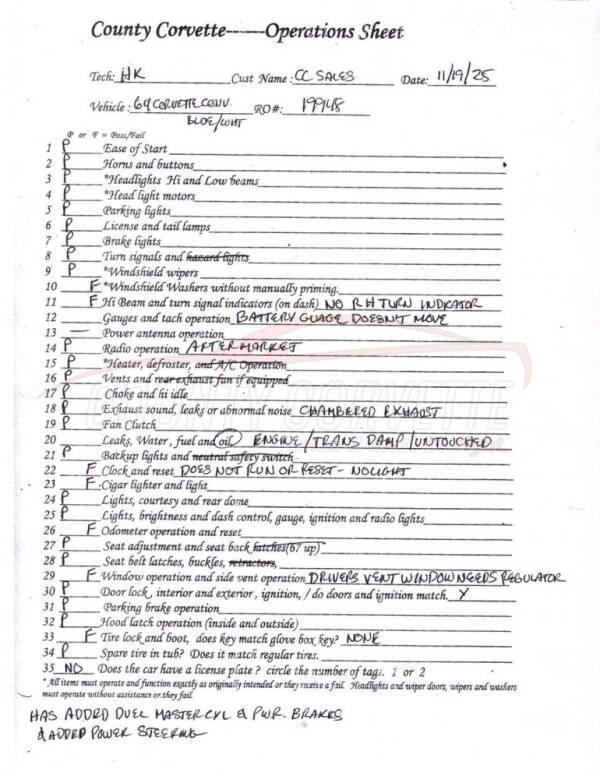 County Corvette------Operations Sheet
Tech: HK Cust Name: CC SALES Date: 11/19/25
Vehicle: 64 CORVETTE CONV. RO#: 19948
BLUE/WHT
P or F = Pass/Fail
1 P Ease of Start
2 P Horns and buttons
3 P *Headlights Hi and Low beams
4 P *Head light motors
5 P Parking lights
6 P License and tail lamps
7 P Brake lights
8 P Turn signals and hazard lights
9 P *Windshield wipers
10 F *Windshield Washers without manually priming.
11 F Hi Beam and turn signal indicators (on dash) NO RH TURN INDICATOR
12 Gauges and tach operation BATTERY GUAGE DOESN'T MOVE
13 — Power antenna operation
14 P Radio operation AFTERMARKET
15 P *Heater, defroster, and A/C Operation
16 P Vents and rear exhaust fan if equipped
17 P Choke and hi idle
18 P Exhaust sound, leaks or abnormal noise CHAMBERED EXHAUST
19 P Fan Clutch
20 Leaks, Water, fuel and oil ENGINE/TRANS DAMP/UNTOUCHED
21 P Backup lights and neutral safety switch
22 F Clock and reset DOES NOT RUN OR RESET - NO LIGHT
23 F Cigar lighter and light
24 P Lights, courtesy and rear dome
25 P Lights, brightness and dash control, gauge, ignition and radio lights
26 F Odometer operation and reset
27 P Seat adjustment and seat back latches(67 up)
28 P Seat belt latches, buckles, retractors,
29 F Window operation and side vent operation DRIVERS VENT WINDOW NEEDS REGULATOR
30 P Door lock, interior and exterior, ignition, / do doors and ignition match. Y
31 P Parking brake operation
32 P Hood latch operation (inside and outside)
33 F Tire lock and boot, does key match glove box key? NONE
34 P Spare tire in tub? Does it match regular tires.
35 NO Does the car have a license plate ? circle the number of tags. 1 or 2
* All items must operate and function exactly as originally intended or they receive a fail. Headlights and wiper doors, wipers and washers
must operate without assistance or they fail.
HAS ADDED DUEL MASTER CYL & PWR. BRAKES
& ADDED POWER STEERING
COUNTY CORVETTE